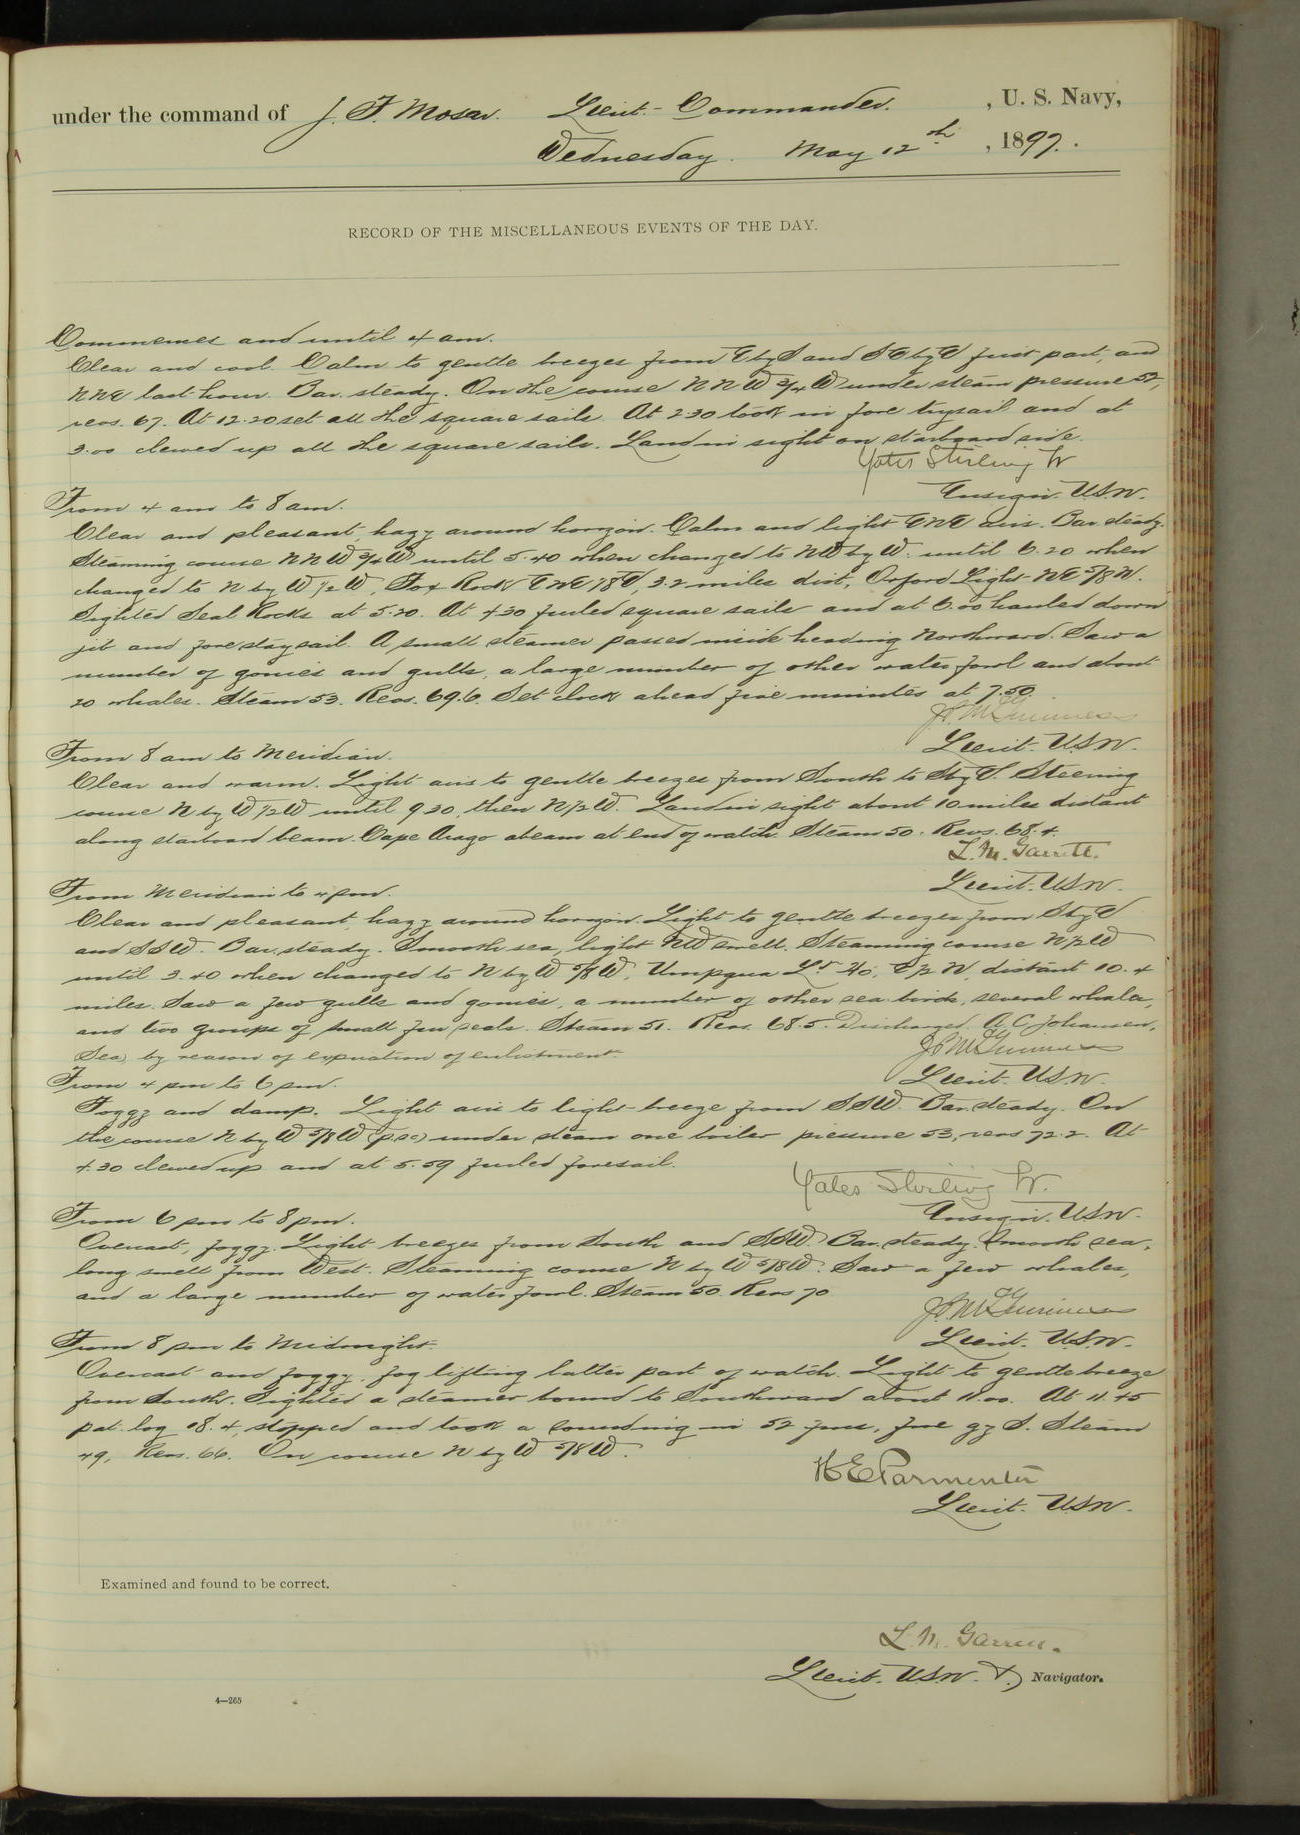 under the command of J. F. Moser. Lieut-Commander. , U. S. Navy,
Wednesday. May 12th , 1897.
RECORD OF THE MISCELLANEOUS EVENTS OF THE DAY.
Commences and until 4 am.
Clear and cool. Calm to gentle breezes from E by S and SE by E first part, and
NNE last hour. Bar. steady. On the course NNW 3/4 W under steam pressure 52,
revs. 67. At 12.20 set all the square sails. At 2.30 took in fore trysail and at
3.00 clewed up all the square sails. Land in sight on starboard side.
Yates Stirling Jr
Ensign. U.S.N.
From 4 am to 8 am.
Clear and pleasant, hazy around horizon. Calm and light ENE airs. Bar. steady.
Steaming course NNW 3/4 W until 5.40 when changed to NW by W. until 6.20 when
changed to N by W 1/2 W, Fox Rock ENE 7/8 E, 3.2 miles dist, Orford Light NE 5/8 N.
Sighted Seal Rocks at 5.20. At 4.30 furled square sails and at 6.00 hauled down
jib and fore staysail. A small steamer passed inside heading Northward. Saw a
number of gonies and gulls, a large number of other water fowl and about
20 whales. Steam 53. Revs. 69.6. Set clock ahead five minutes at 7.50.
J. P. McGuinness
Lieut. U.S.N.
From 8 am to Meridian.
Clear and warm. Light airs to gentle breezes from South to S by E. Steering
course N by W 1/2 W until 9.20, then N 1/2 W. Land in sight about 10 miles distant
along starboard beam. Cape Arago abeam at end of watch. Steam 50. Revs. 68.4.
L. M. Garrett.
Lieut. U.S.N.
From Meridian to 4 pm.
Clear and pleasant, hazy around horizon. Light to gentle breezes from S by E
and SSW. Bar. steady. Smooth sea, light NW swell. Steaming course N 1/2 W
until 3.40 when changed to N by W 5/8 W, Umpqua Lt Ho, E 1/2 N, distant 10.4
miles. Saw a few gulls and gonies, a number of other sea birds, several whales,
and two groups of small fur seals. Steam 51. Revs. 68.5. Discharged A. C. Johansen,
Sea) by reason of expiration of enlistment.
J. P. McGuinness
Lieut. U.S.N.
From 4 pm to 6 pm.
Foggy and damp. Light airs to light breeze from SSW. Bar. steady. On
the course N by W 5/8 W (p.s.c.) under steam one boiler pressure 53, revs 72.2. At
4.30 clewed up and at 5.59 furled foresail.
Yates Stirling Jr.
Ensign. U.S.N.
From 6 pm to 8 pm.
Overcast, foggy. Light breezes from South and SSW. Bar. steady. Smooth sea,
long swell from West. Steaming course N by W 5/8 W. Saw a few whales,
and a large number of water fowl. Steam 50. Revs 70
J. P. McGuinness
Lieut. U.S.N.
From 8 pm to Midnight.
Overcast and foggy, fog lifting latter part of watch. Light to gentle breeze
from South. Sighted a steamer bound to Southward about 11.00. At 11.45
pat. log 18.4, stopped and took a sounding in 52 fms, fne gy S. Steam
49, Revs. 66. On course N by W 5/8 W.
H E Parmenter
Lieut. U.S.N.
Examined and found to be correct.
L. M. Garrett.
Lieut. U.S.N. &) Navigator.
4—265